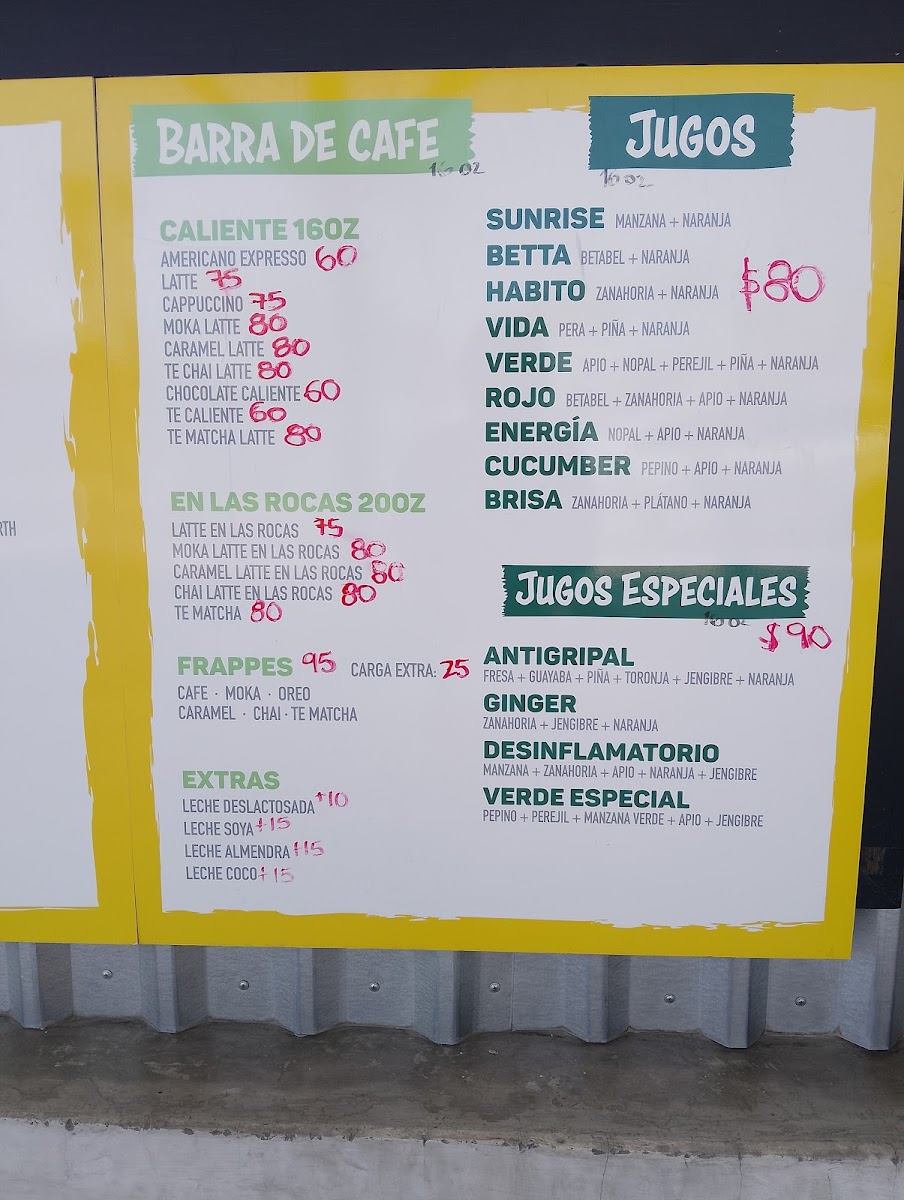 RTH
BARRA DE CAFE
16 oz
CALIENTE 16OZ
AMERICANO EXPRESSO 60
LATTE 75
CAPPUCCINO 75
MOKA LATTE 80
CARAMEL LATTE 80
TE CHAI LATTE 80
CHOCOLATE CALIENTE 60
TE CALIENTE 60
TE MATCHA LATTE 80
EN LAS ROCAS 20OZ
LATTE EN LAS ROCAS 75
MOKA LATTE EN LAS ROCAS 80
CARAMEL LATTE EN LAS ROCAS 80
CHAI LATTE EN LAS ROCAS 80
TE MATCHA 80
FRAPPES 95 CARGA EXTRA: 25
CAFE · MOKA · OREO
CARAMEL · CHAI · TE MATCHA
EXTRAS
LECHE DESLACTOSADA +10
LECHE SOYA +15
LECHE ALMENDRA +15
LECHE COCO +15
JUGOS
16 oz
SUNRISE MANZANA + NARANJA
BETTA BETABEL + NARANJA
HABITO ZANAHORIA + NARANJA $80
VIDA PERA + PIÑA + NARANJA
VERDE APIO + NOPAL + PEREJIL + PIÑA + NARANJA
ROJO BETABEL + ZANAHORIA + APIO + NARANJA
ENERGÍA NOPAL + APIO + NARANJA
CUCUMBER PEPINO + APIO + NARANJA
BRISA ZANAHORIA + PLÁTANO + NARANJA
JUGOS ESPECIALES
16 oz
$90
ANTIGRIPAL
FRESA + GUAYABA + PIÑA + TORONJA + JENGIBRE + NARANJA
GINGER
ZANAHORIA + JENGIBRE + NARANJA
DESINFLAMATORIO
MANZANA + ZANAHORIA + APIO + NARANJA + JENGIBRE
VERDE ESPECIAL
PEPINO + PEREJIL + MANZANA VERDE + APIO + JENGIBRE